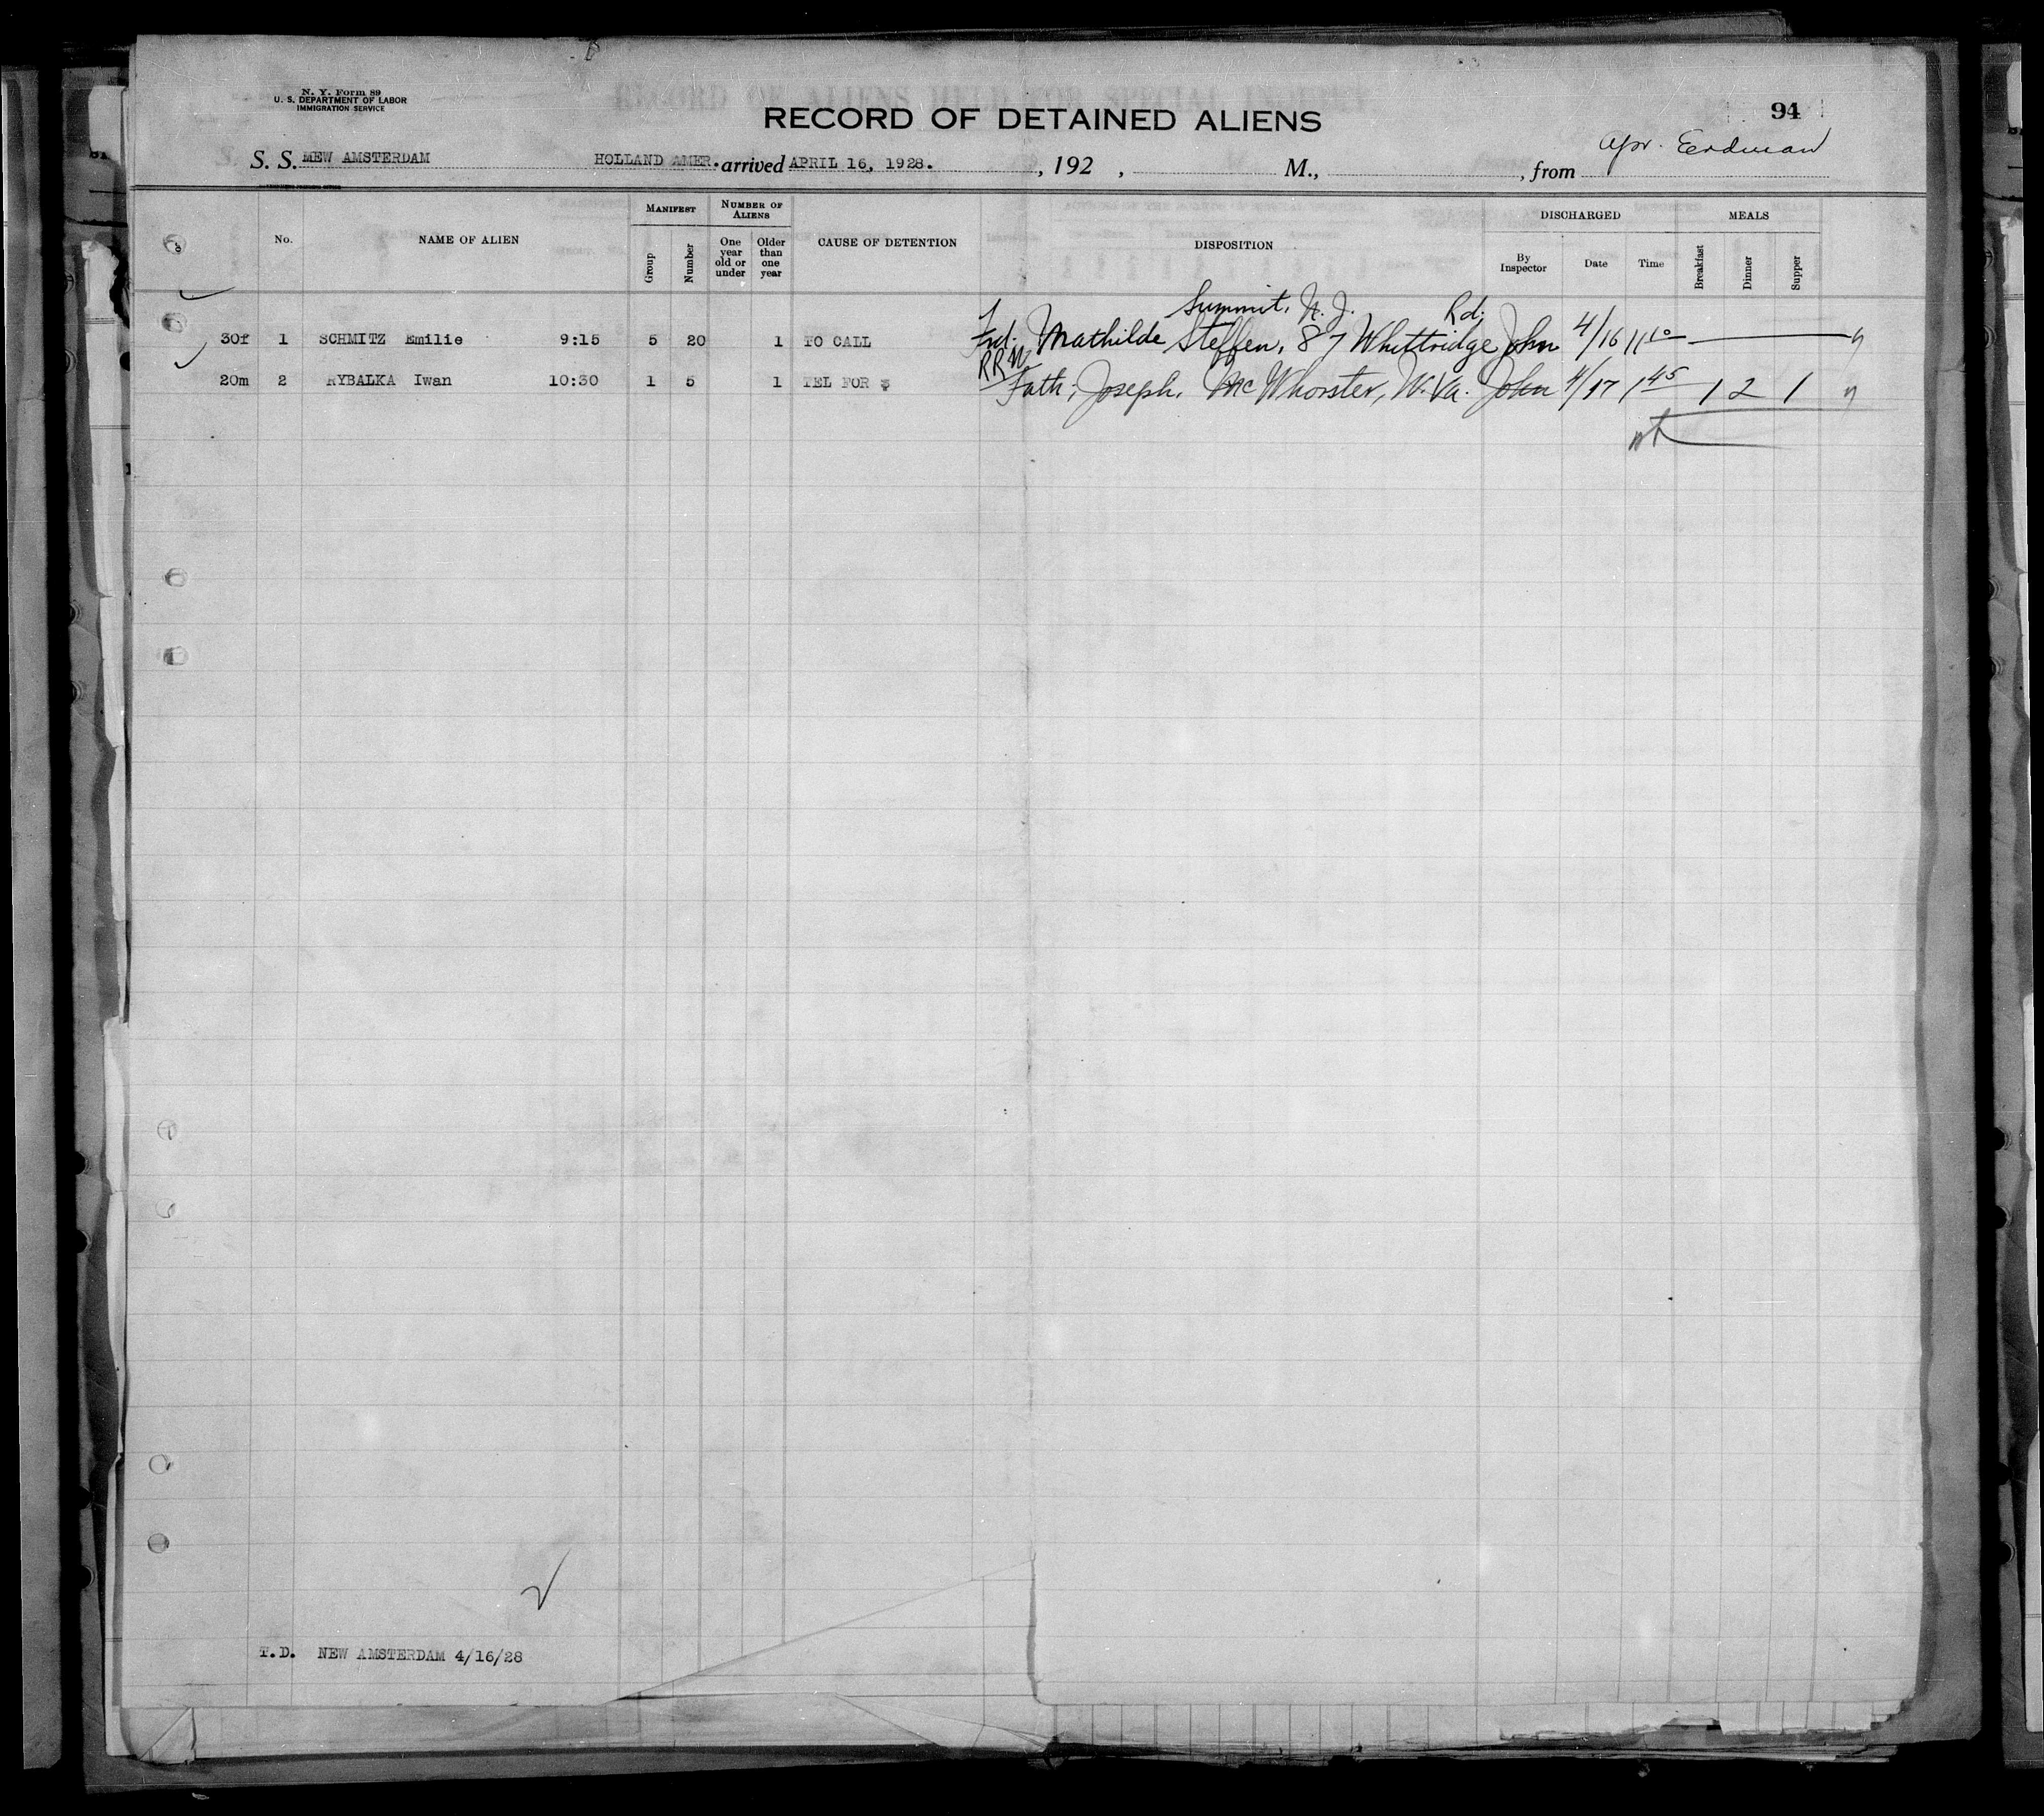 N. Y. Form 89
U. S. DEPARTMENT OF LABOR
IMMIGRATION SERVICE
94
RECORD OF DETAINED ALIENS
S. S. MEW AMSTERDAM HOLLAND AMER. arrived APRIL 16, 1928. , 192 , M., , from Erdman
No. NAME OF ALIEN MANIFEST Group Number NUMBER OF ALIENS One year old or under Older than one year CAUSE OF DETENTION DISPOSITION DISCHARGED By Inspector Date Time MEALS Breakfast Dinner Supper
Summit, N. J. Rd.
30f 1 SCHMITZ Emilie 9:15 5 20 1 TO CALL Frd. Mathilde Steffen, 87 Whittridge John 4/16 11 10
RRW
20m 2 RYBALKA Iwan 10:30 1 5 1 TEL FOR $ Fath; Joseph, McWhorster, W. Va. John 4/17 1 45 1 2 1
T.D. NEW AMSTERDAM 4/16/28